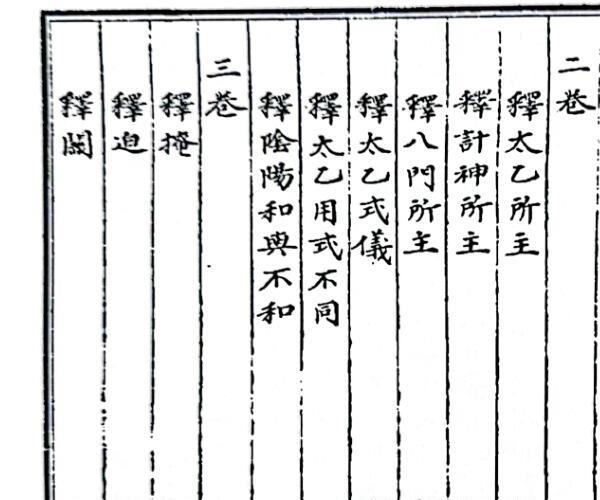 二卷
釋太乙所主
釋計神所主
釋八門所主
釋太乙式儀
釋太乙用式不同
釋陰陽和與不和
三卷
釋掩
釋迫
釋關